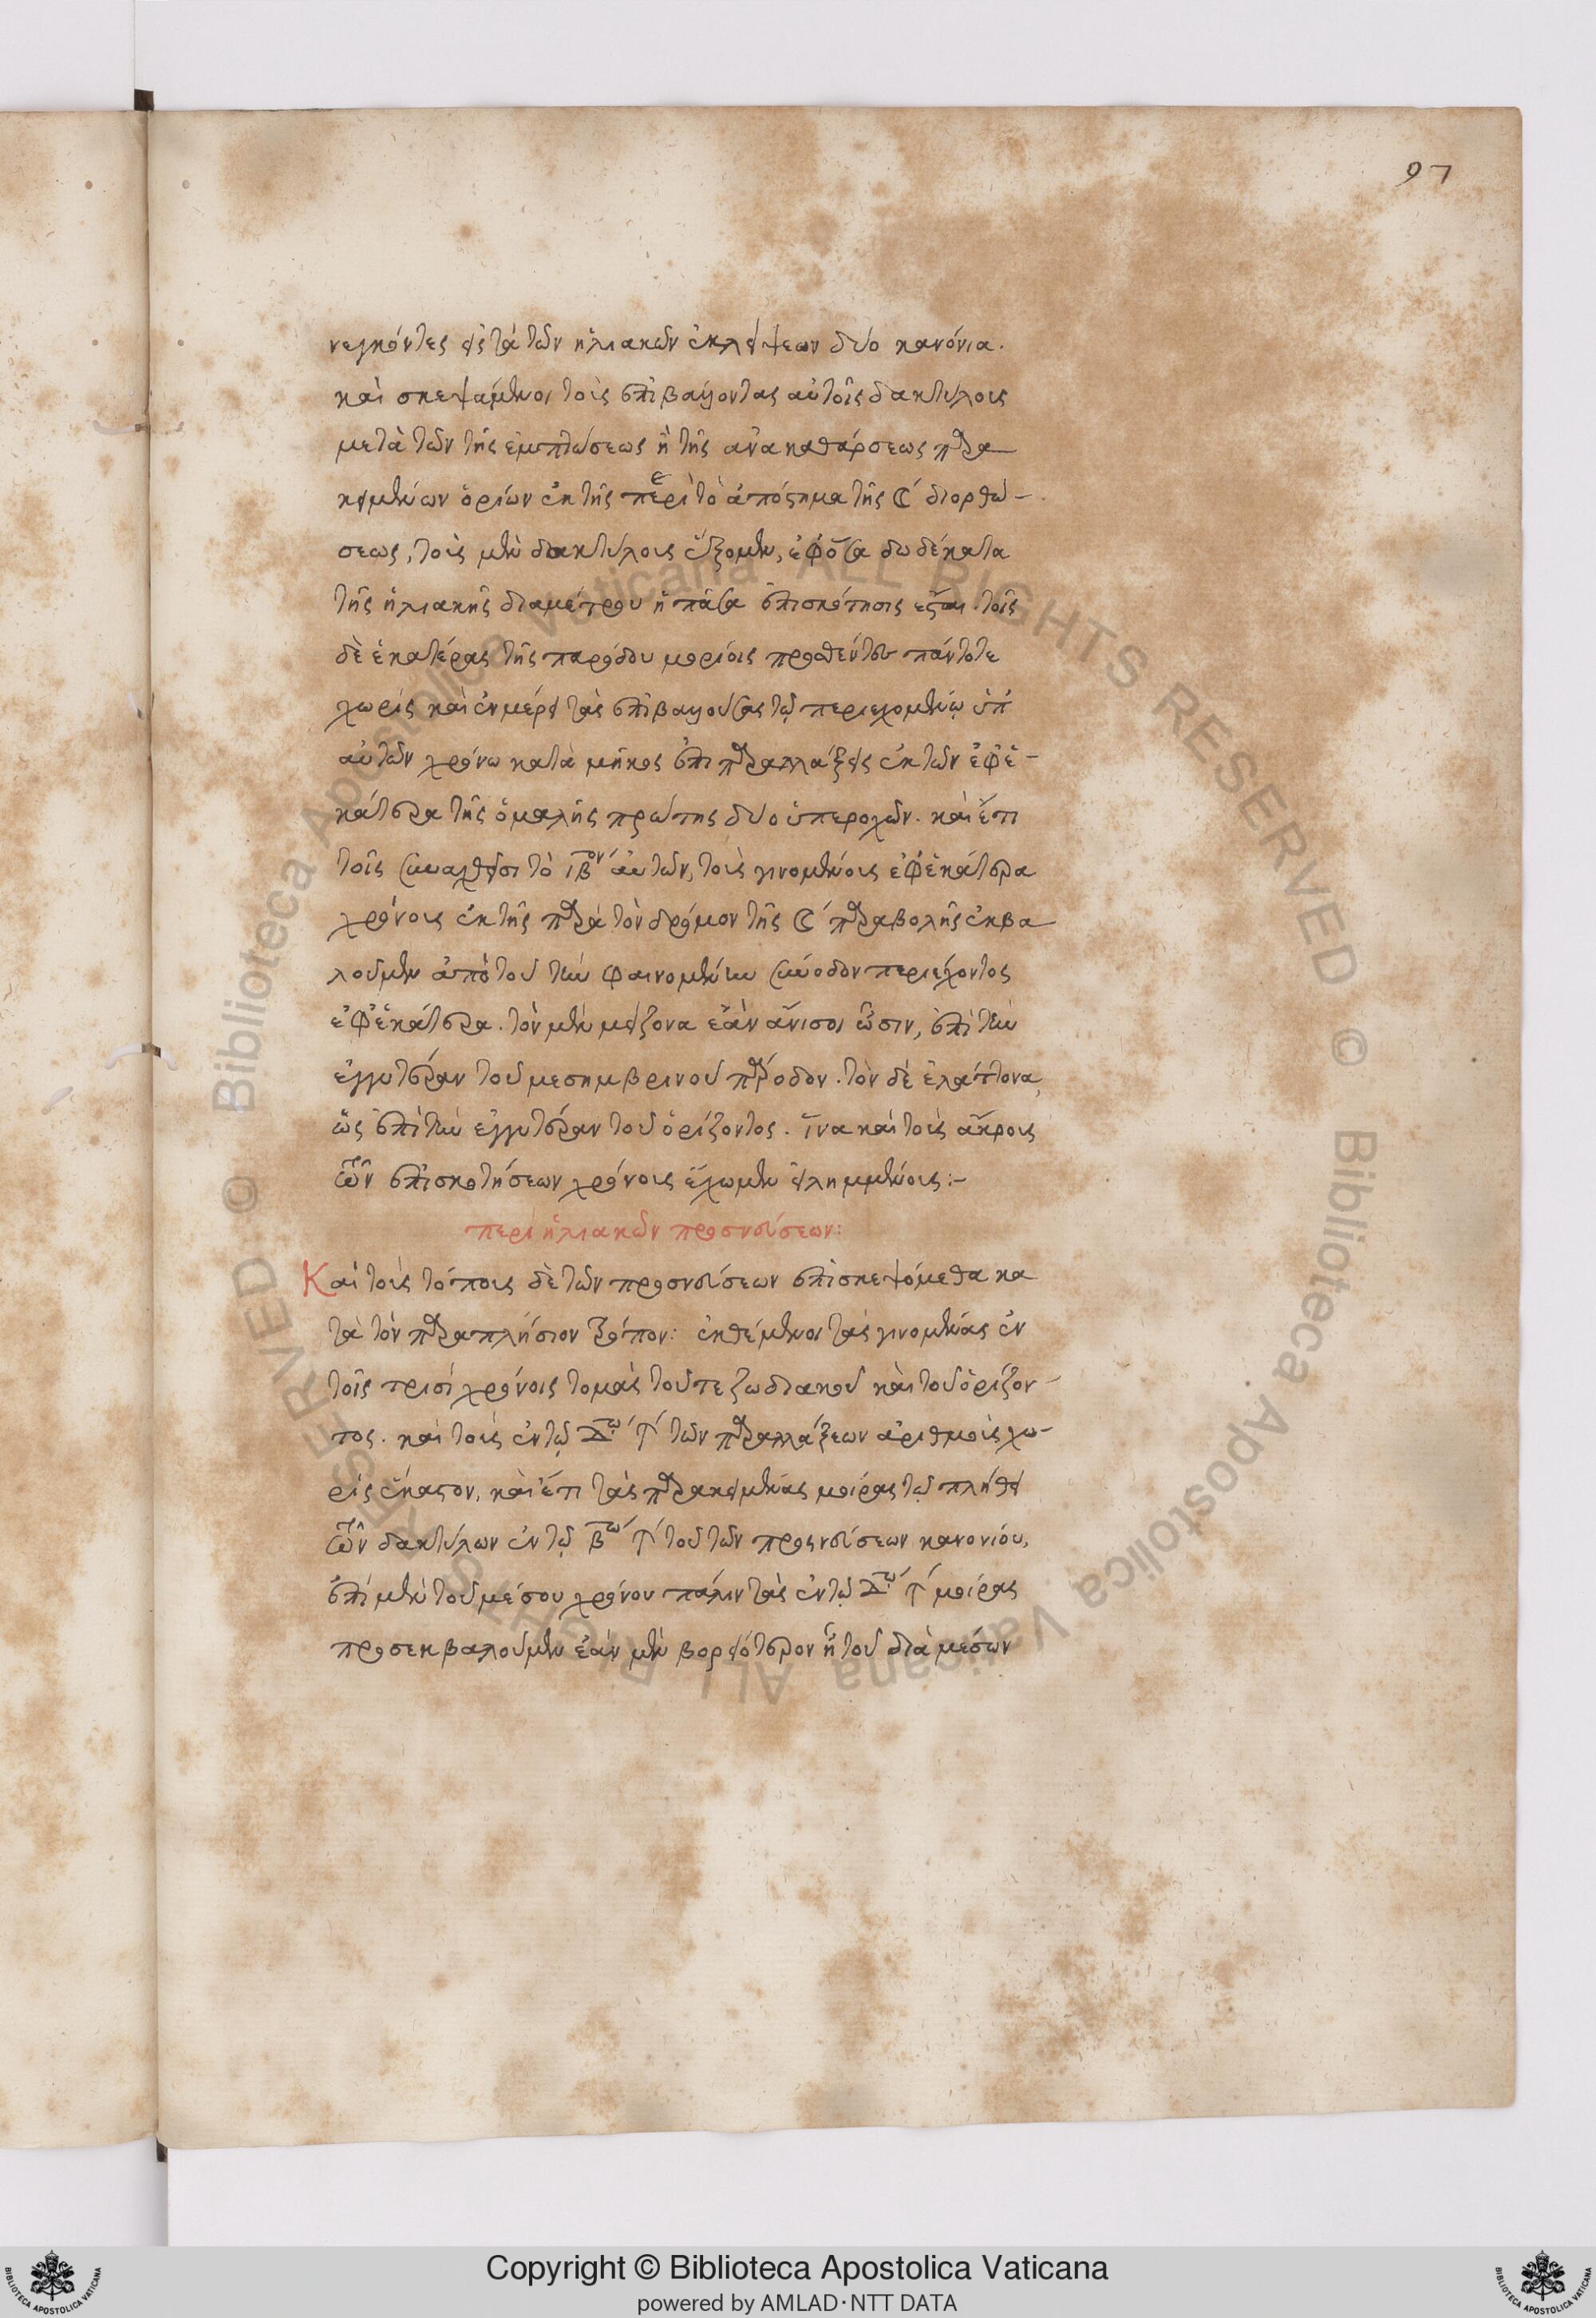 97
νεγκόντες εἰς τὰ τῶν ἡλιακῶν ἐκλείψεων δύο κανόνια.
καὶ σκεψάμενοι τοὺς ἐπιβάλλοντας αὐτοῖς δακτύλους
μετὰ τῶν τῆς ἐμπτώσεως ἢ τῆς ἀνακαθάρσεως παρα
κειμένων ὁρίων ἐκ τῆς περὶ τὸ ἀπόστημα τῆς ☾ διορθώ-
σεως, τοὺς μὲν δακτύλους ἕξομεν, ἐφ' ὅσα δωδέκατα
τῆς ἡλιακῆς διαμέτρου ἡ πᾶσα ἐπισκότησις ἔσται. τοῖς
δὲ ἑκατέρας τῆς παρόδου μορίοις προσθέντες πάντοτε
χωρὶς καὶ ἐν μέρει τὰς ἐπιβαλλούσας τῷ περιεχομένῳ ὑπ'
αὐτῶν χρόνω κατὰ μῆκος ἐπιπαραλλάξεις ἐκ τῶν ἐφ' ἑ-
κάτερα τῆς ὁμαλῆς πρώτης δύο ὑπεροχῶν. καὶ ἔτι
τοῖς συναχθεῖσι τὸ ιβον αὐτῶν, τοὺς γινομένους ἐφ' ἑκάτερα
χρόνους ἐκ τῆς παρὰ τὸν δρόμον τῆς ☾ παραβολῆς ἐκβα
λοῦμεν ἀπὸ τοῦ τὴν φαινομένην σύνοδον περιέχοντος
ἐφ' ἑκάτερα. τὸν μὲν μείζονα ἐὰν ἄνισοι ὦσιν, ἐπὶ τὴν
ἐγγυτέραν τοῦ μεσημβρινοῦ πάροδον. τὸν δὲ ἐλάττονα,
ὡς ἐπὶ τὴν ἐγγυτέραν τοῦ ὁρίζοντος. ἵνα καὶ τοὺς ἄκρους
τῶν ἐπισκοτήσεων χρόνους ἔχωμεν εἰλημμένους:-
περὶ ἡλιακῶν προσνεύσεων:
Καὶ τοὺς τόπους δὲ τῶν προσνεύσεων ἐπισκεψόμεθα κα
τὰ τὸν παραπλήσιον τρόπον: ἐκθέμενοι τὰς γινομένας ἐν
τοῖς τρισὶ χρόνοις τομὰς τοῦ τε ζωδιακοῦ καὶ τοῦ ὁρίζον-
τος. καὶ τοὺς ἐν τῷ δω τῶν παραλλάξεων ἀριθμοὺς χω-
ρὶς ἕκαστον, καὶ ἔτι τὰς παρακειμένας μοίρας τῷ πλήθει
τῶν δακτύλων ἐν τῷ βω τοῦ τῶν προσνεύσεων κανονίου,
ἐπὶ μὲν τοῦ μέσου χρόνου πάλιν τὰς ἐν τῷ δω μοίρας
προσεκβαλοῦμεν ἐὰν μὲν βορειότερον ᾖ τοῦ διὰ μέσων
Copyright © Biblioteca Apostolica Vaticana
powered by AMLAD·NTT DATA